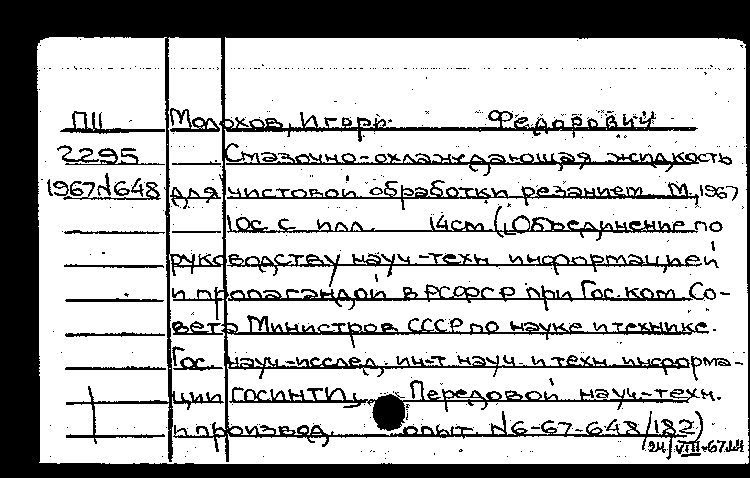 ПII Молохов, Игорь Федорович
2295 Смазочно-охлаждающая жидкость
1967 N648 для чистовой обработки резанием. М, 1967
10с с илл. 14см. ([Объединение по
руководству науч.-техн информацией
и пропагандой в РСФСР при Гос. ком. Со-
вета Министров СССР по науке и технике.
Гос. науч.-исслед. ин-т науч. и техн. информа-
ции ГОСИНТИ]. Передовой науч.-техн.
и производ. опыт. N6-67-648/182)